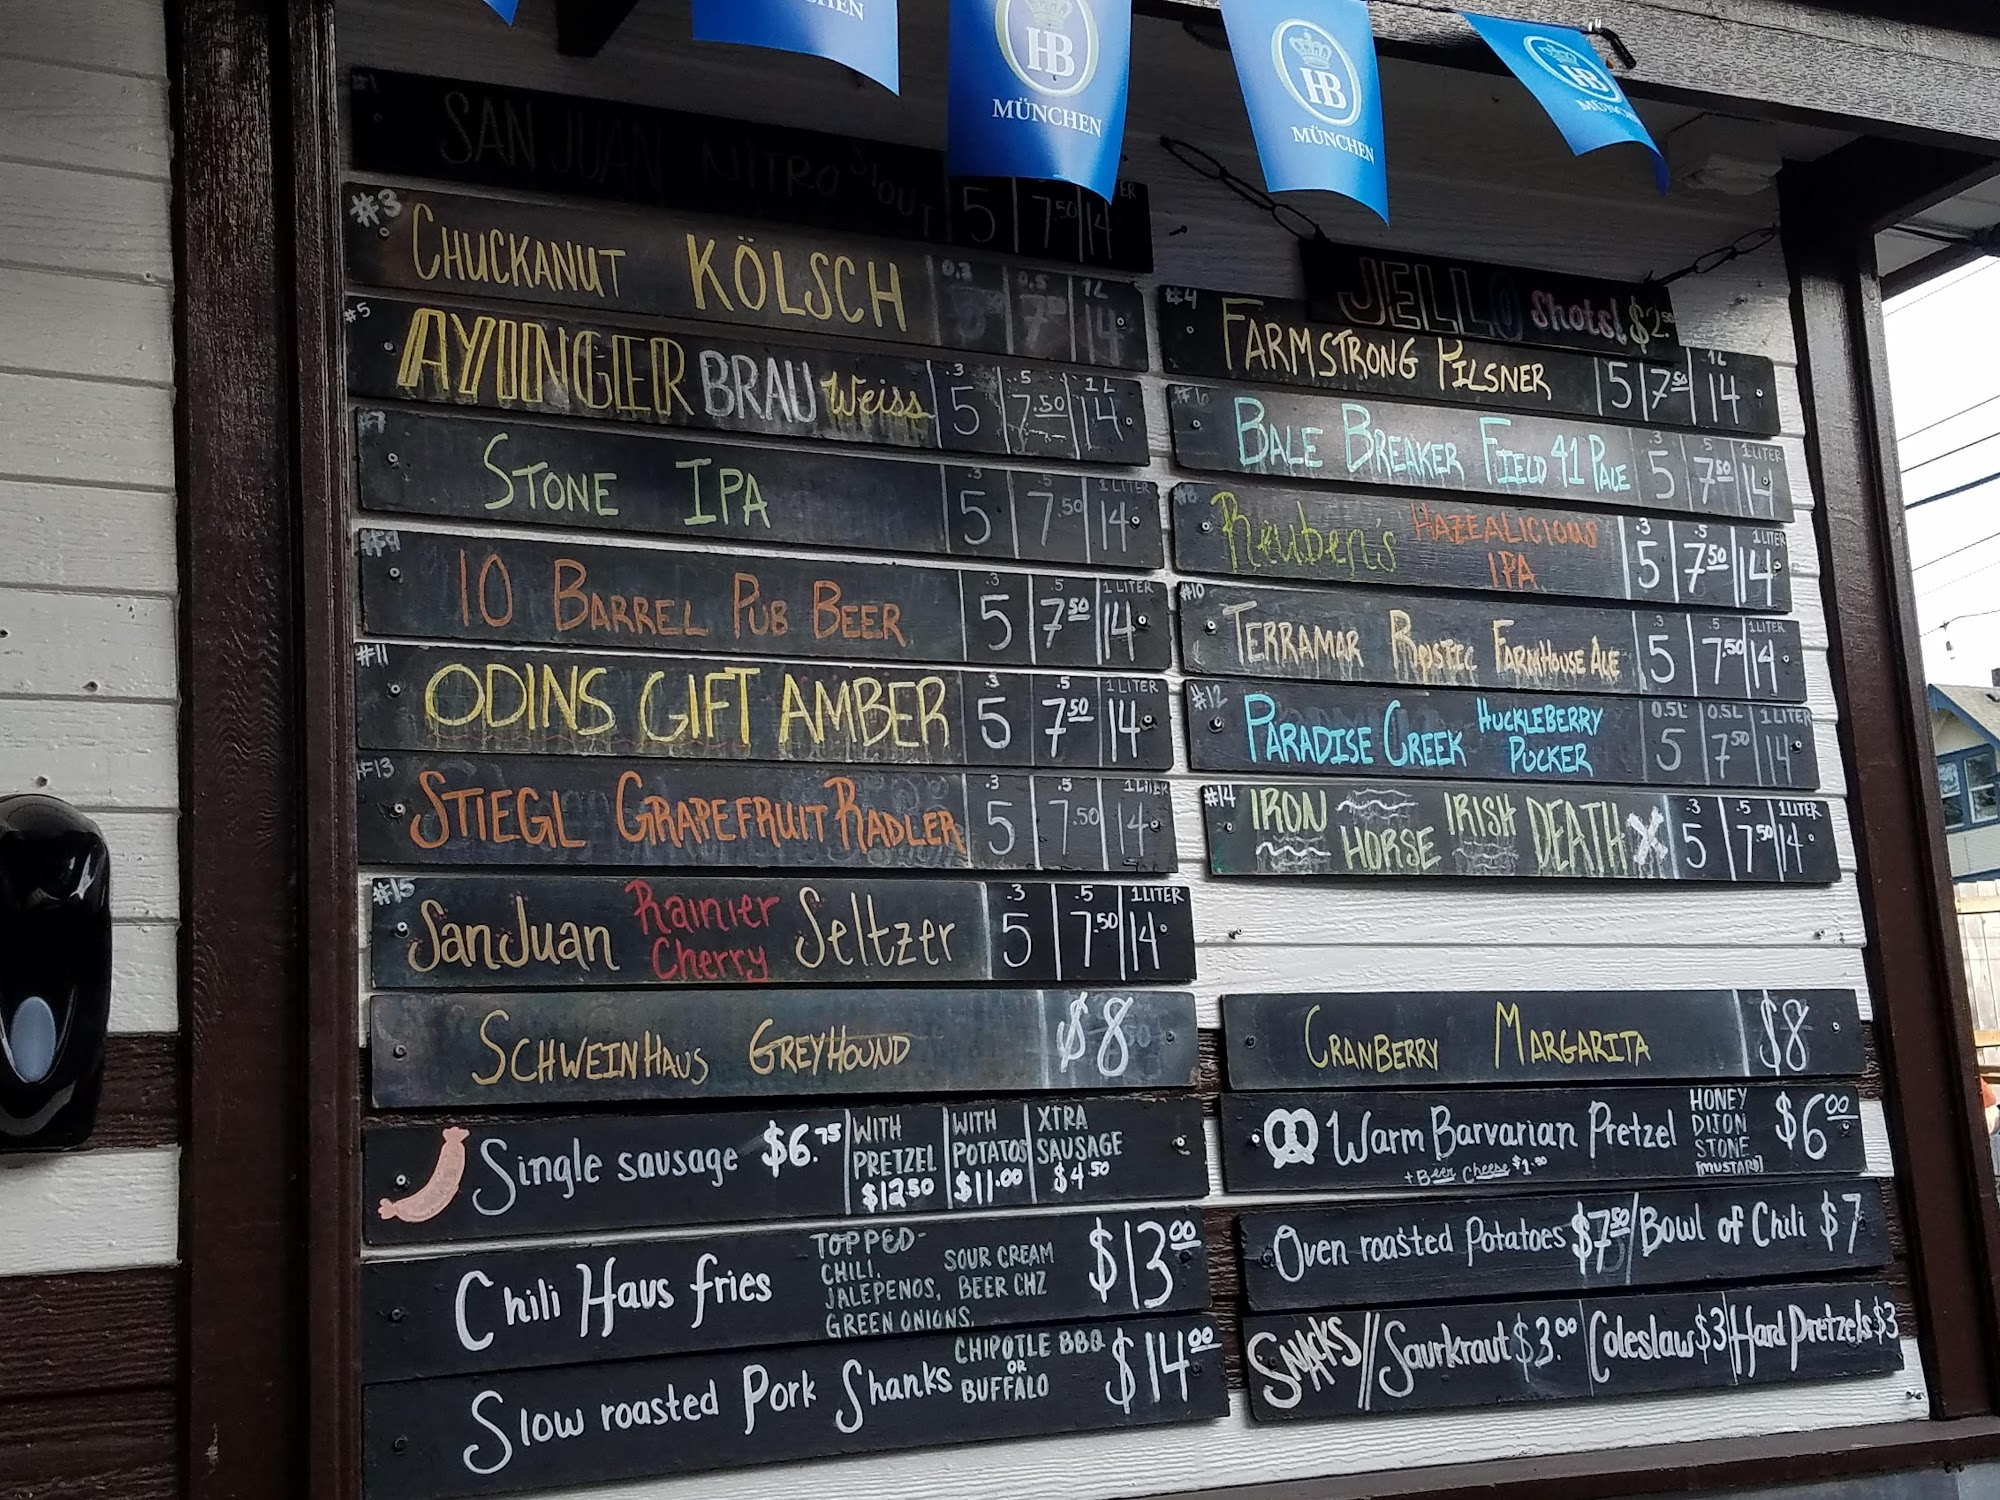 HEN
HB
MÜNCHEN
HB
MÜNCHEN
HB
#1 SAN JUAN NITRO STOUT 5 7.50 14
#3 CHUCKANUT KÖLSCH 0.3 0.5 7 1L 14
#5 AYINGER BRAU Weiss .3 5 .5 7.50 1L 14
#7 STONE IPA .3 5 .5 7.50 1 LITER 14
10 BARREL PUB BEER .3 5 .5 7.50 1 LITER 14
#11 ODINS GIFT AMBER .3 5 .5 7.50 1 LITER 14
#13 STIEGL GRAPEFRUIT RADLER .3 5 .5 7.50 1 LITER 14
#15 San Juan Rainier Cherry Seltzer .3 5 .5 7.50 1 LITER 14
SCHWEINHAUS GREYHOUND $8
Single sausage $6.75 WITH PRETZEL $12.50 WITH POTATOS $11.00 XTRA SAUSAGE $4.50
Chili Haus fries TOPPED- CHILI, JALEPENOS, GREEN ONIONS, SOUR CREAM BEER CHZ $13.00
Slow roasted Pork Shanks CHIPOTLE BBQ OR BUFFALO $14.00
JELLO Shots! $2.50
#4 FARMSTRONG PILSNER 5 7.50 1L 14
#6 BALE BREAKER FIELD 41 PALE .3 5 .5 7.50 1 LITER 14
#8 Reuben's HAZEALICIOUS IPA .3 5 .5 7.50 1 LITER 14
#10 TERRAMAR RUSTIC FARMHOUSE ALE .3 5 .5 7.50 1 LITER 14
#12 PARADISE CREEK HUCKLEBERRY PUCKER 0.5L 5 0.5L 7.50 1 LITER 14
#14 IRON HORSE IRISH DEATH .3 5 .5 7.50 1 LITER 14
CRANBERRY MARGARITA $8
Warm Barvarian Pretzel + Beer Cheese $1.50 HONEY DIJON STONE [MUSTARD] $6.00
Oven roasted Potatoes $7.50/Bowl of Chili $7
SNACKS// Saurkraut $3.00 Coleslaw $3 Hard Pretzels $3